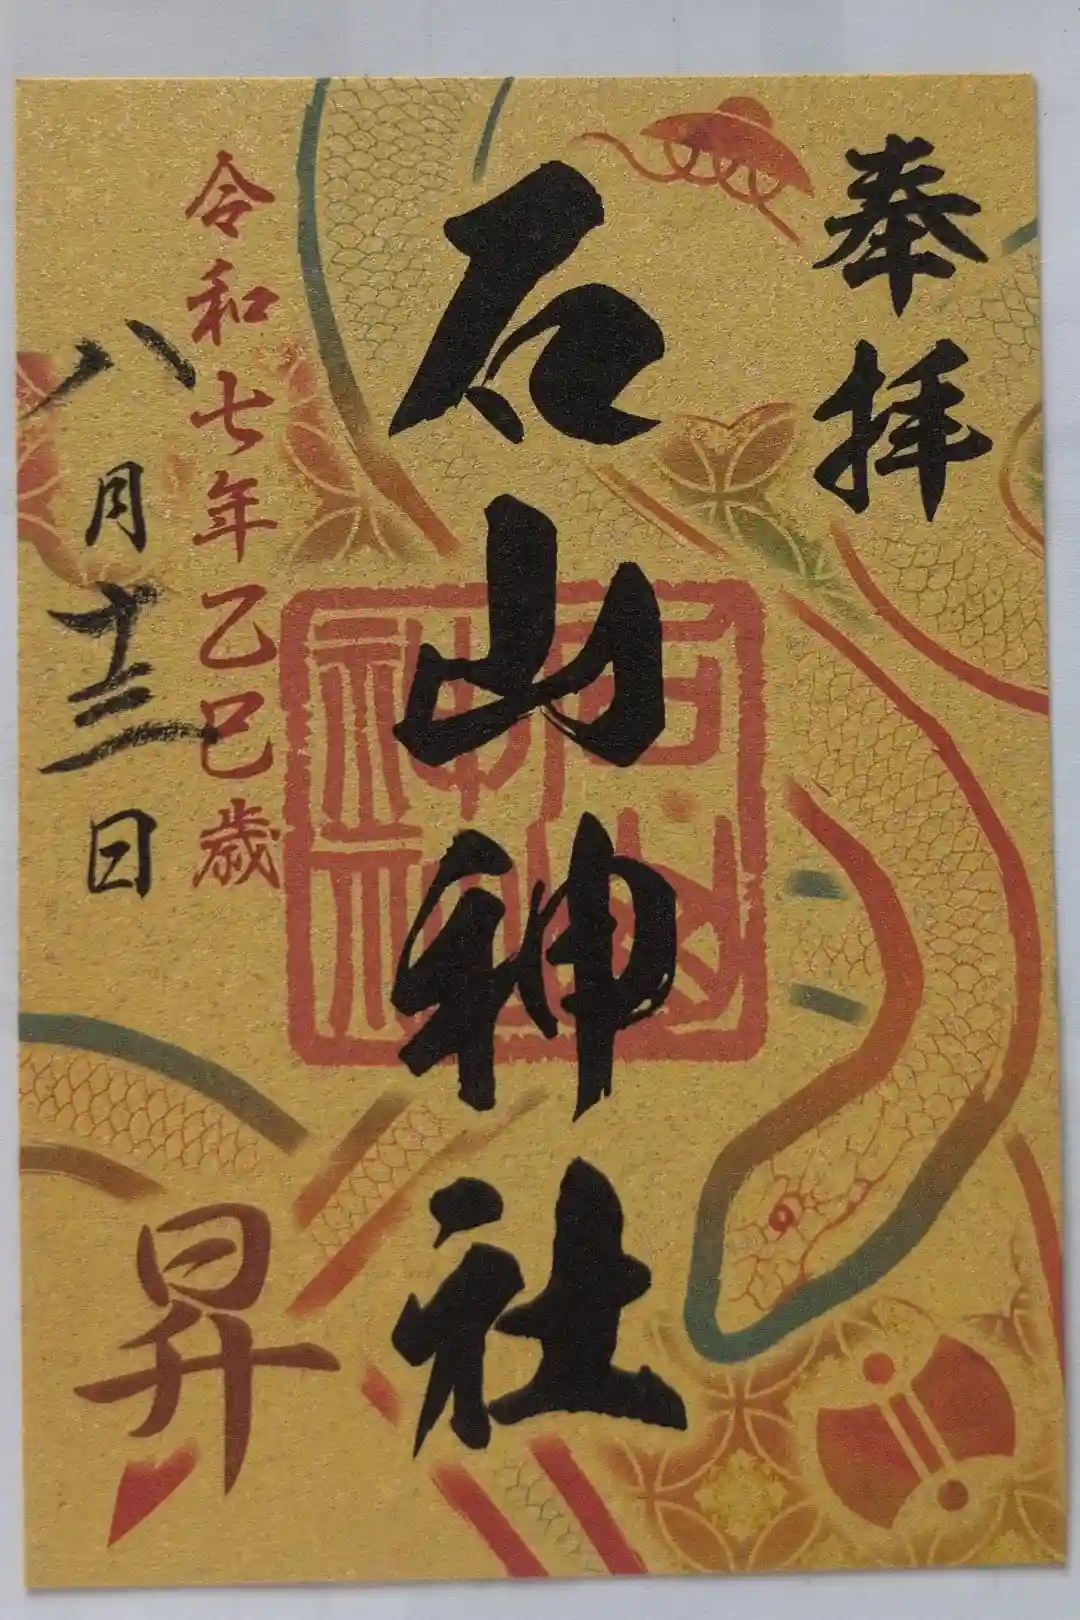 奉拝
石山神社
石山
神社
令和七年乙巳歳
八月十三日
昇